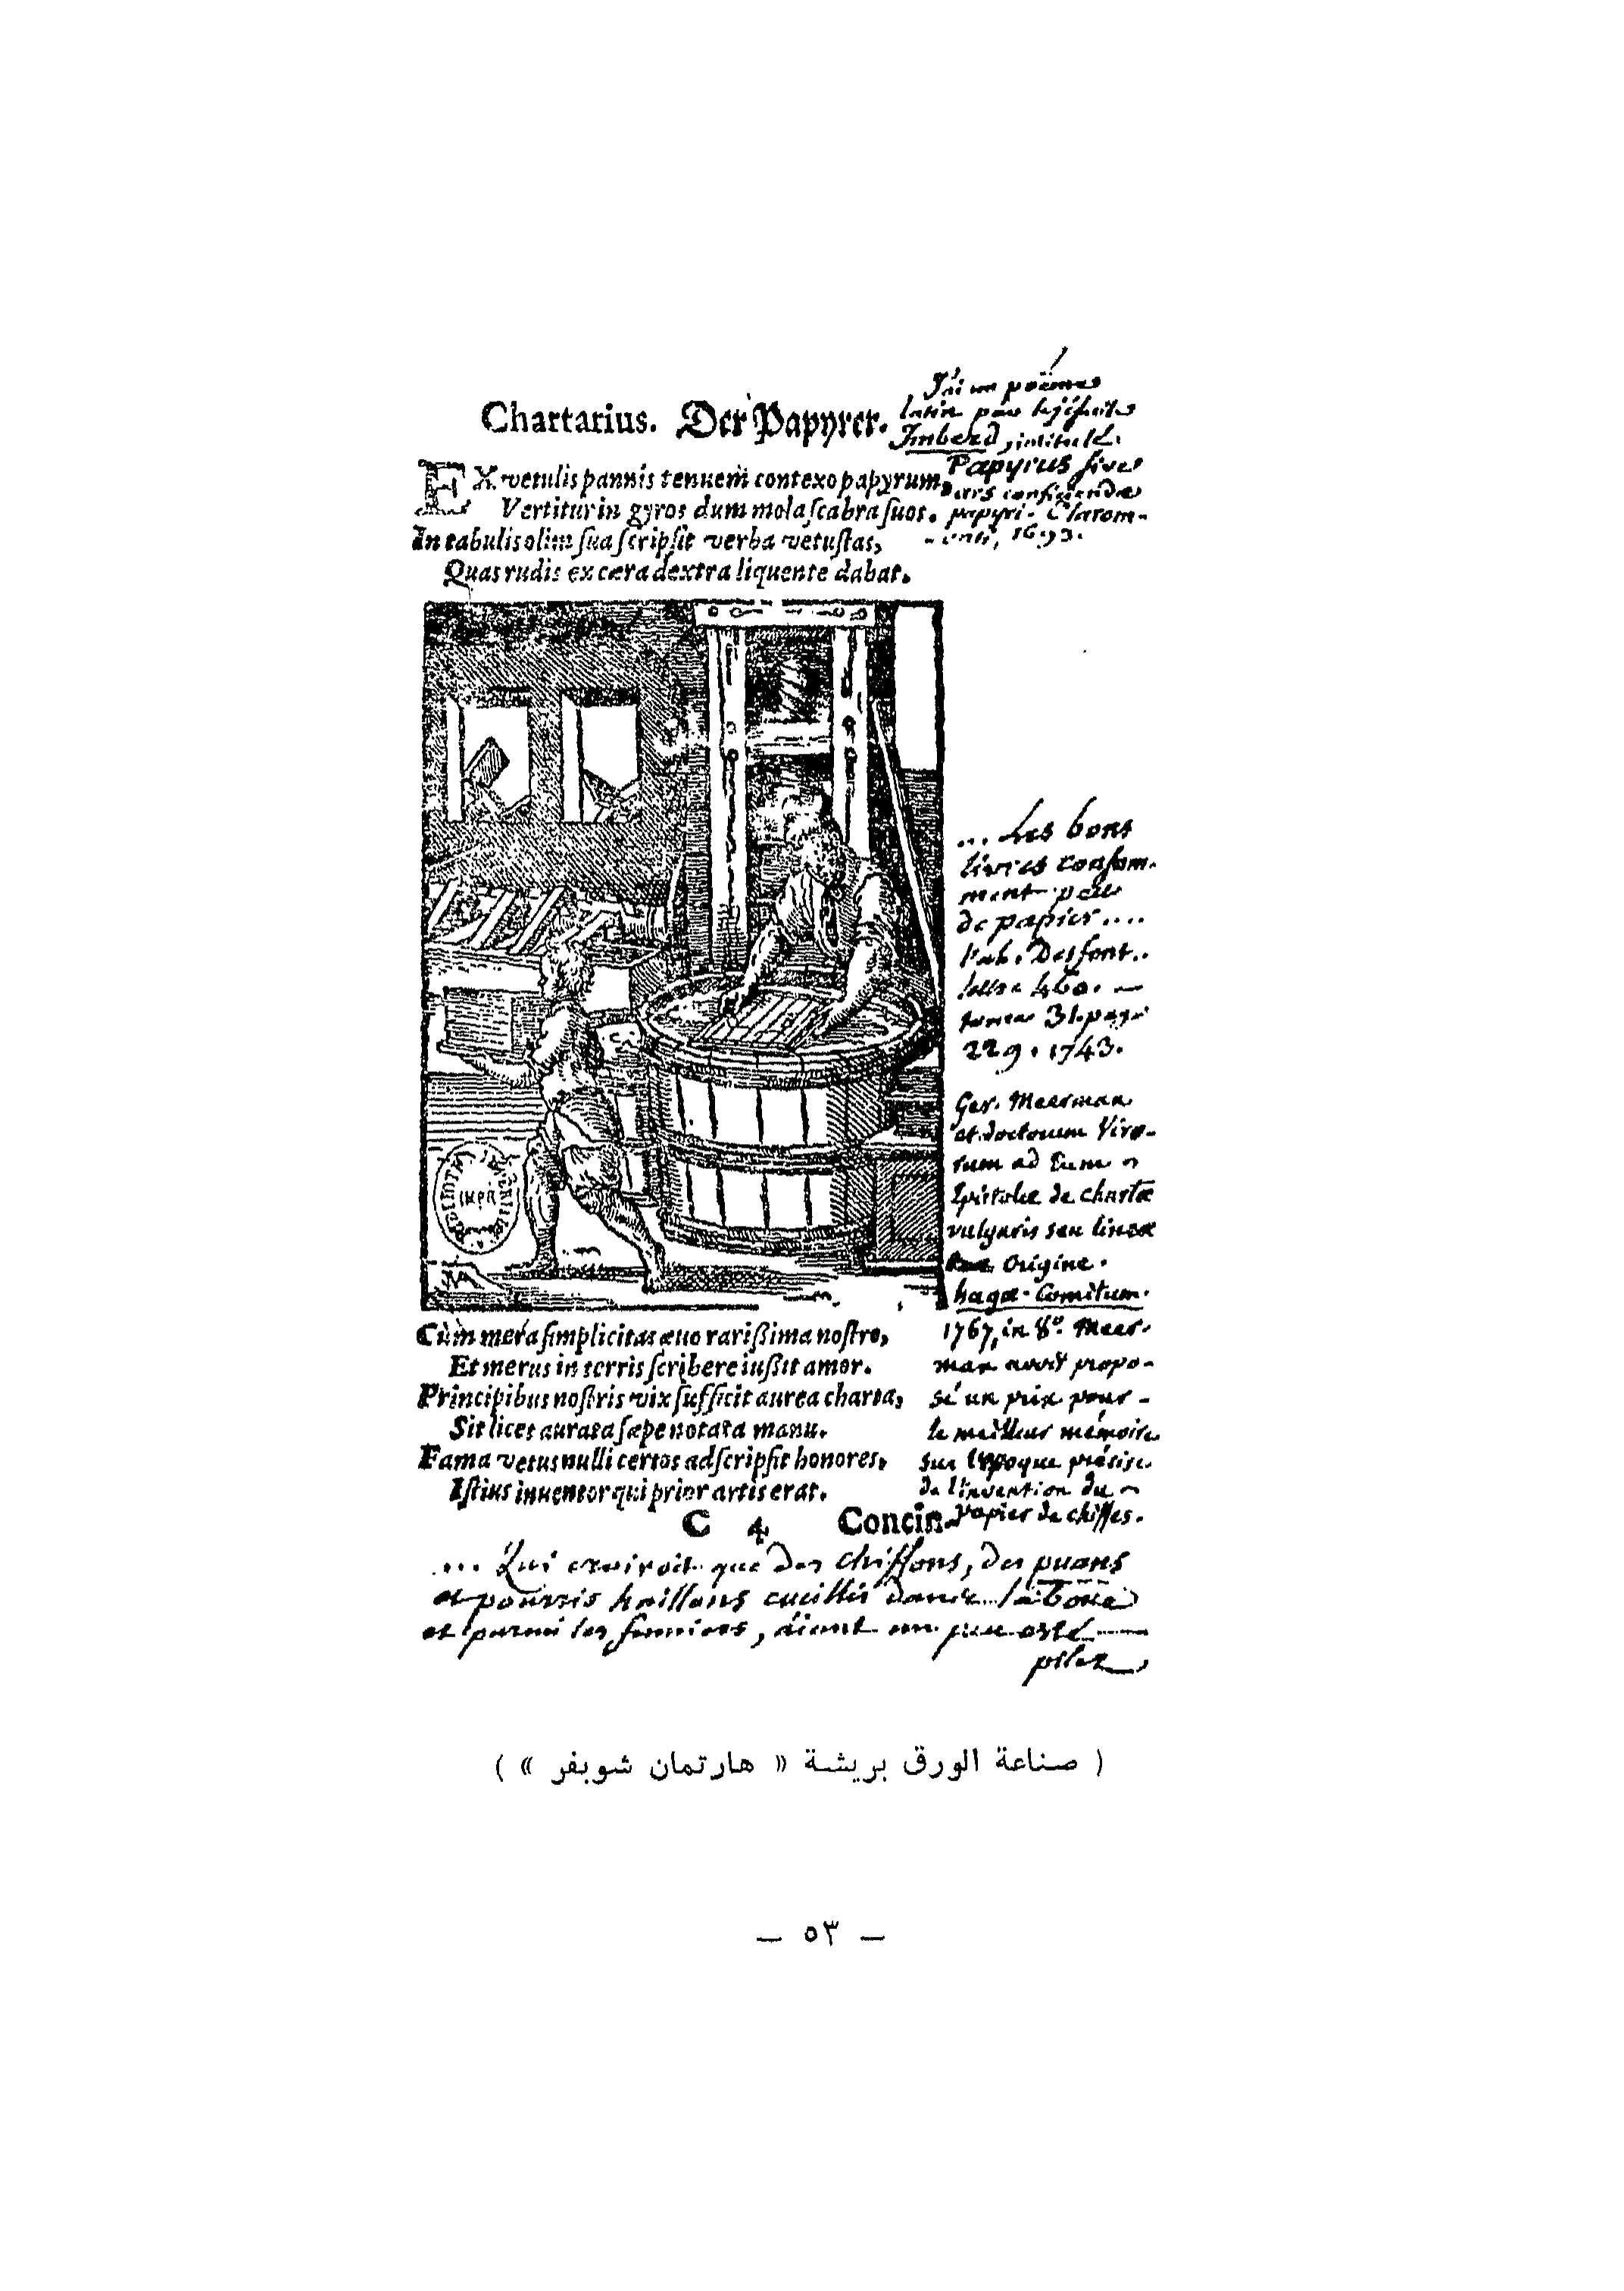 Chartarius. Der Papyrer.
EX vetulis pannis tenuem contexo papyrum,
Vertitur in gyros dum mola scabra suos.
In tabulis olim sua scripsit verba vetustas,
Quas rudis ex cæra dextra liquente dabat.
J'ai un poëme
latin
Imberd, intitulé
Papyrus sive
ars conficiendæ
papyri. Clarom-
1693.
... Les bons
livres consom-
ment peu
de papier....
l'ab. Desfont..
lettre 460. —
tome 31. page
229. 1743.
Ger. Meerman
et doctorum Viro-
rum ad Eum
Epistolæ de chartæ
vulgaris seu lineæ
Origine.
hagæ-Comitum.
1767, in 8º. Meer-
man avoit propo-
sé un prix pour
le meilleur mémoire
sur l'epoque précise
de l'invention du
papier de chiffes.
IMPR
Cùm mera simplicitas æuo rarißima nostro,
Et merus in terris scribere iußit amor.
Principibus nostris vix sufficit aurea charta,
Sit licet aurata sæpe notata manu.
Fama vetus nulli certos adscripsit honores,
Istius inuentor qui prior artis erat.
C 4 Concin-
... Qui croiroit que des chiffons, des puans
et pourris haillons cueillis dans la boue
et parmi les fumiers, aiant un peu esté
pilez,
( صناعة الورق بريشة « هارتمان شوبفر » )
— ٥٣ —